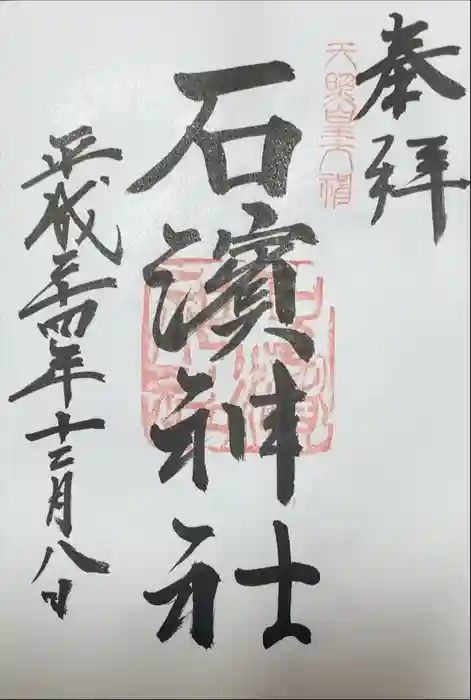 奉拝
天照皇大神
石濱神社
平成二十四年十二月八日